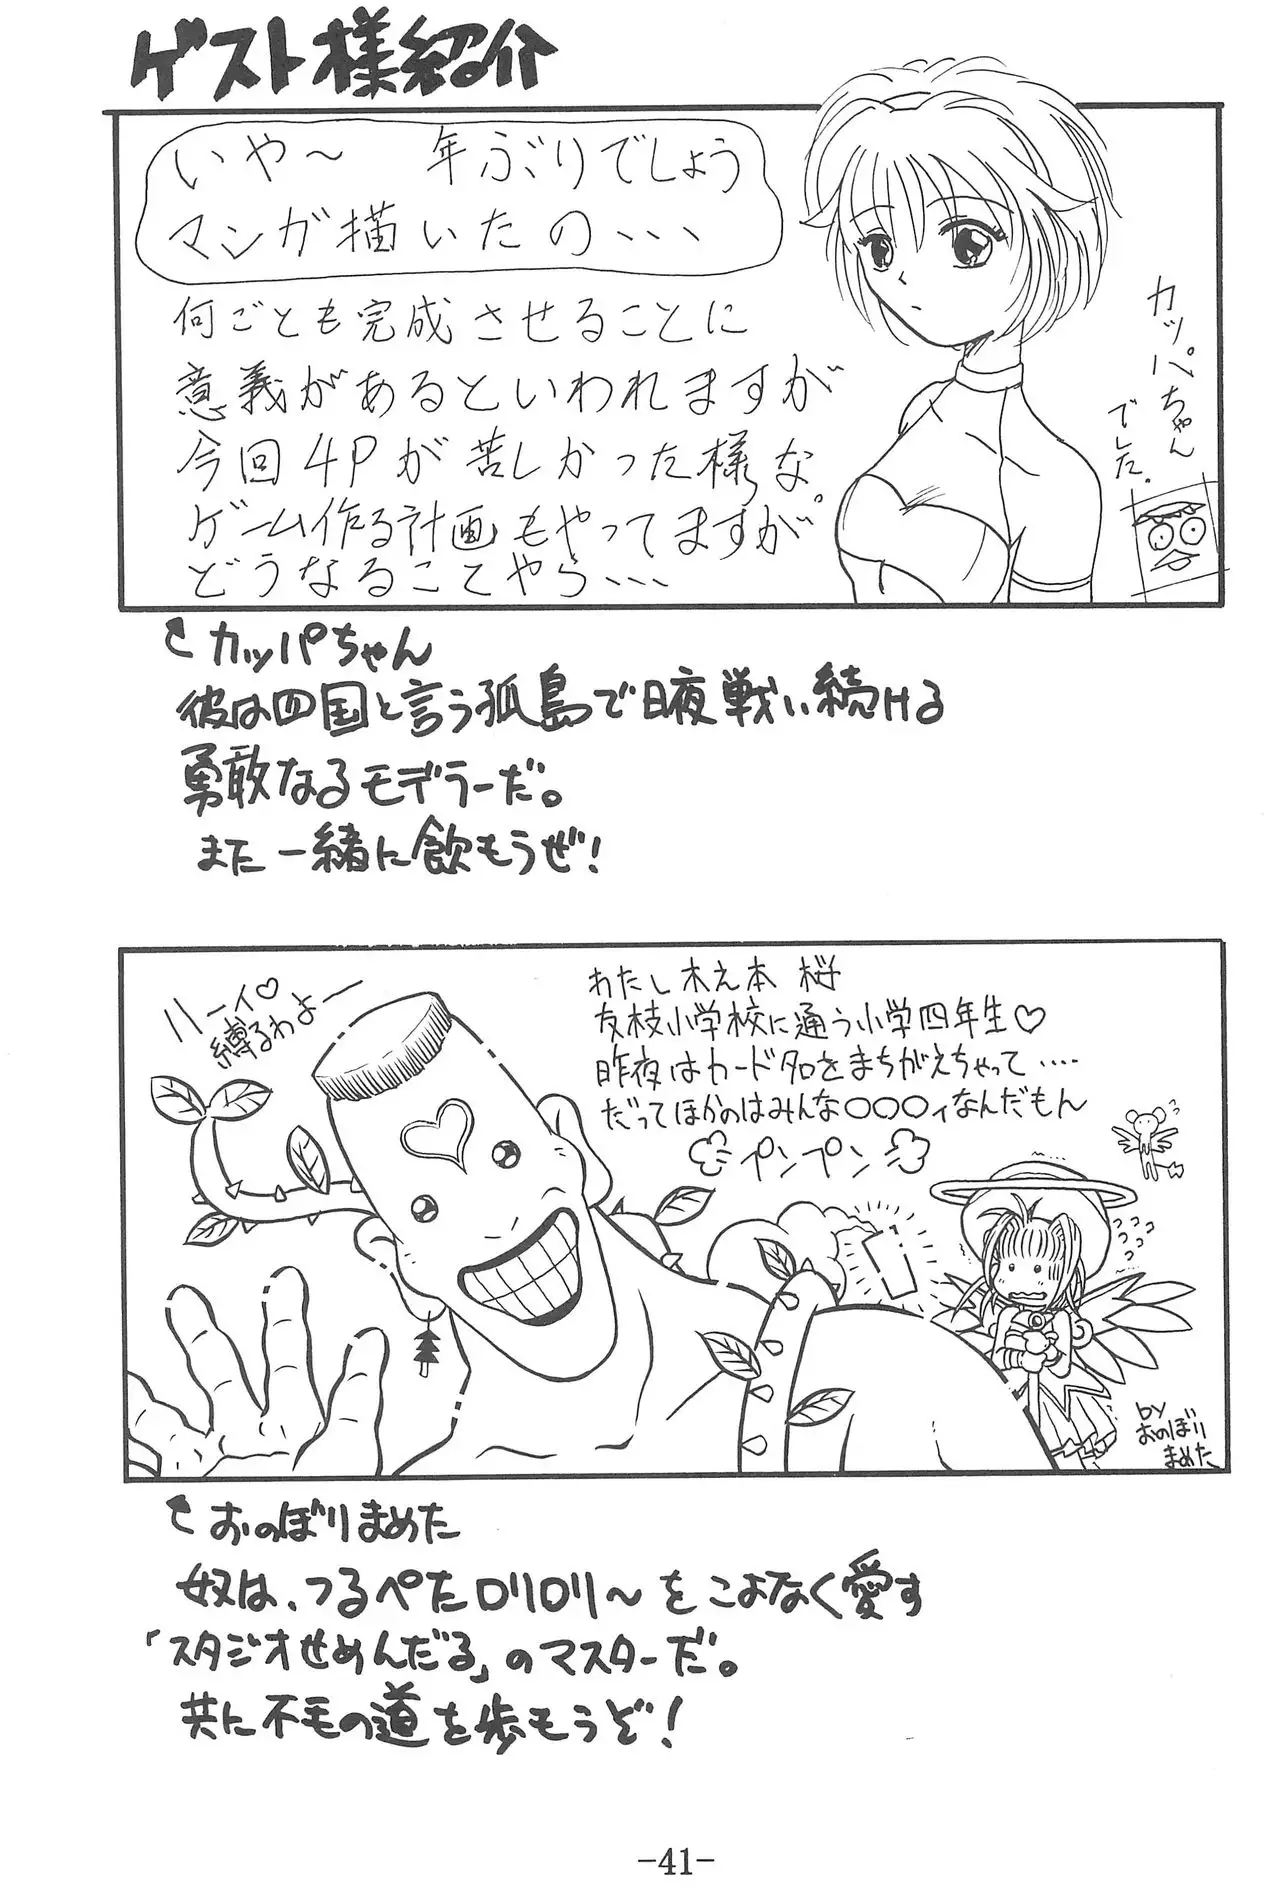 ゲスト様紹介
いや〜 年ぶりでしょう
マンガ描いたの、、、
何ごとも完成させることに
意義があるといわれますが
今回4Pが苦しかった様な。
ゲーム作る計画もやってますが
どうなることやら、、、
カッパちゃん
でした。
カッパちゃん
彼は四国と言う孤島で日夜戦い続ける
勇敢なるモデラーだ。
また一緒に飲もうぜ!
ハーイ♡
縛るわよー
わたし木之本 桜
友枝小学校に通う小学四年生♡
昨夜はカード名をまちがえちゃって‥‥‥
だってほかのはみんな○○○ィなんだもん
プンプン
by
おのぼり
まめた
おのぼりまめた
奴は、つるぺたロリロリ〜をこよなく愛す
「スタジオせめんだる」のマスターだ。
共に不毛の道を歩もうぞ!
-41-